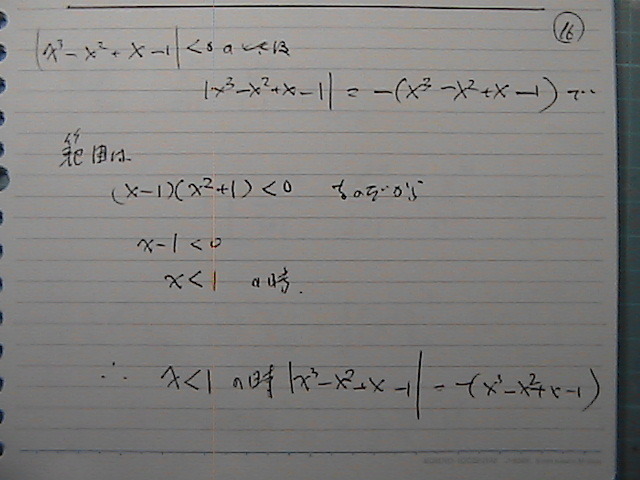 ⑯
|x³-x²+x-1|<0 の
|x³-x²+x-1| = -(x³-x²+x-1) で
範囲は
(x-1)(x²+1)<0
x-1<0
x<1 の時.
∴ x<1 の時 |x³-x²+x-1| = -(x³-x²+x-1)